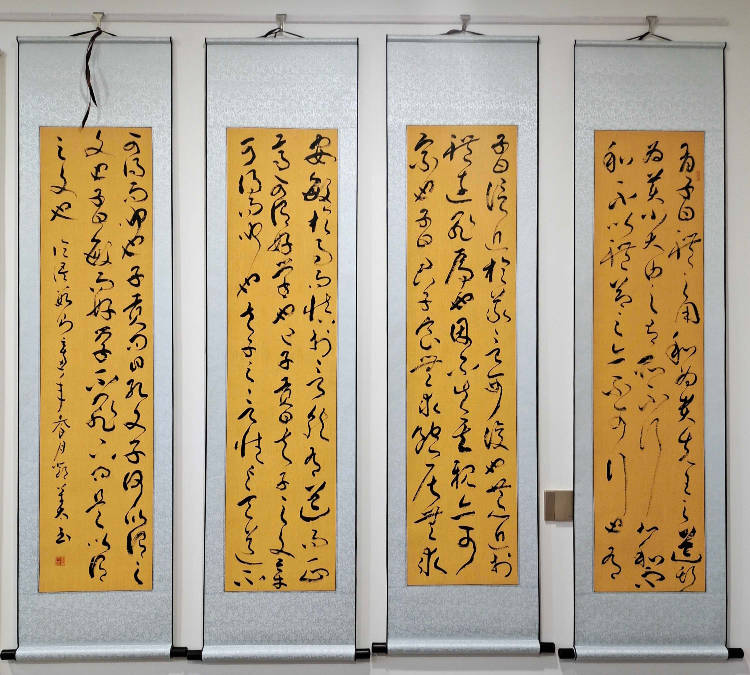 有子曰禮之用和為貴先王之道斯
為美小大由之有所不行知和而
和不以禮節之亦不可行也有
子曰信近於義言可復也恭近於
禮遠恥辱也因不失其親亦可
宗也子曰君子食無求飽居無求
安敏於事而慎於言就有道而正
焉可謂好學也已子貢曰夫子之文章
可得而聞也夫子之言性與天道不
可得而聞也子貢問曰孔文子何以謂之
文也子曰敏而好學不恥下問是以謂
之文也
論語數句 年春月